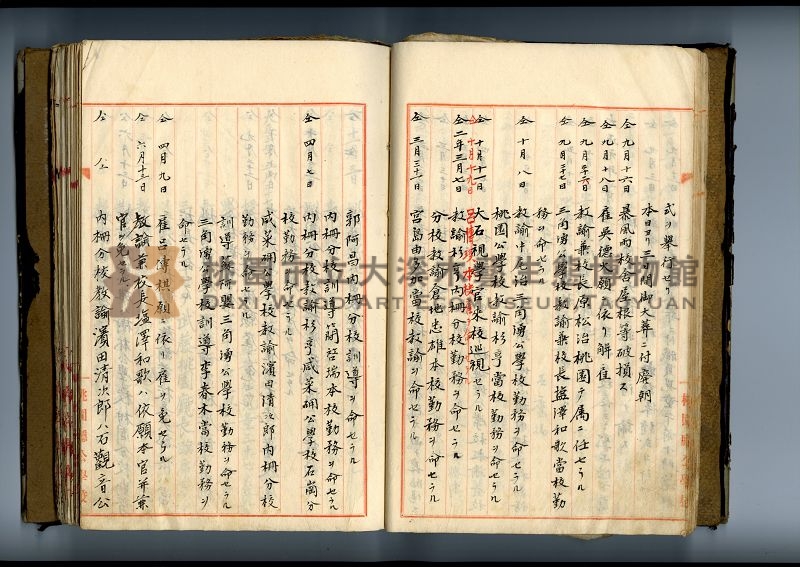 式ヲ舉行セリ
本日ヨリ三日間御大葬ニ付廢朝
仝 九月十六日 暴風雨校舍屋根等破損ス
仝 九月十八日 雇吳德大願ニ依リ解雇
仝 九月 教諭兼校長原松治桃園 ニ任セラル
仝 九月二十七日 三角湧公學校教諭兼校長塩澤和歌當校勤
務ヲ命セラル
仝 十月八日 教諭中 治三角湧公學校勤務ヲ命セラル
桃園公學校教諭杉亨咸菜硼公學校勤務ヲ命セラル
仝 十月十一日 大石視學官本校巡視セラル
仝 十月十九日
仝 二年三月七日 教諭杉亨內柵分校勤務ヲ命セラル
分校教諭倉地忠雄本校勤務ヲ命セラル
仝 三月三十一日 宮島由 當校教諭ニ命セラル
郭阿昌內柵分校訓導ヲ命セラル
內柵分校訓導簡 瑞本校勤務ヲ命セラル
仝 四月七日 內柵分校教諭杉亨咸菜硼公學校石崗分
校勤務ヲ命セラル
咸菜硼公學校教諭濱田清次郎內柵分校
勤務ヲ命セラル
訓導葉 興三角湧公學校勤務ヲ命セラル
三角湧公學校訓導李春木當校勤務ヲ
命セラル
仝 四月九日 雇呂傳棋願ニ依リ雇ヲ免セラル
仝 六月十三日 教諭兼校長塩澤和歌ハ依願本官并兼
官ヲ免セラル
仝 仝 內柵分校教諭濱田清次郎ハ石觀音公
桃園市立大溪木藝生態博物館
DAXI WOOD ART ECOMUSEUM TAOYUAN